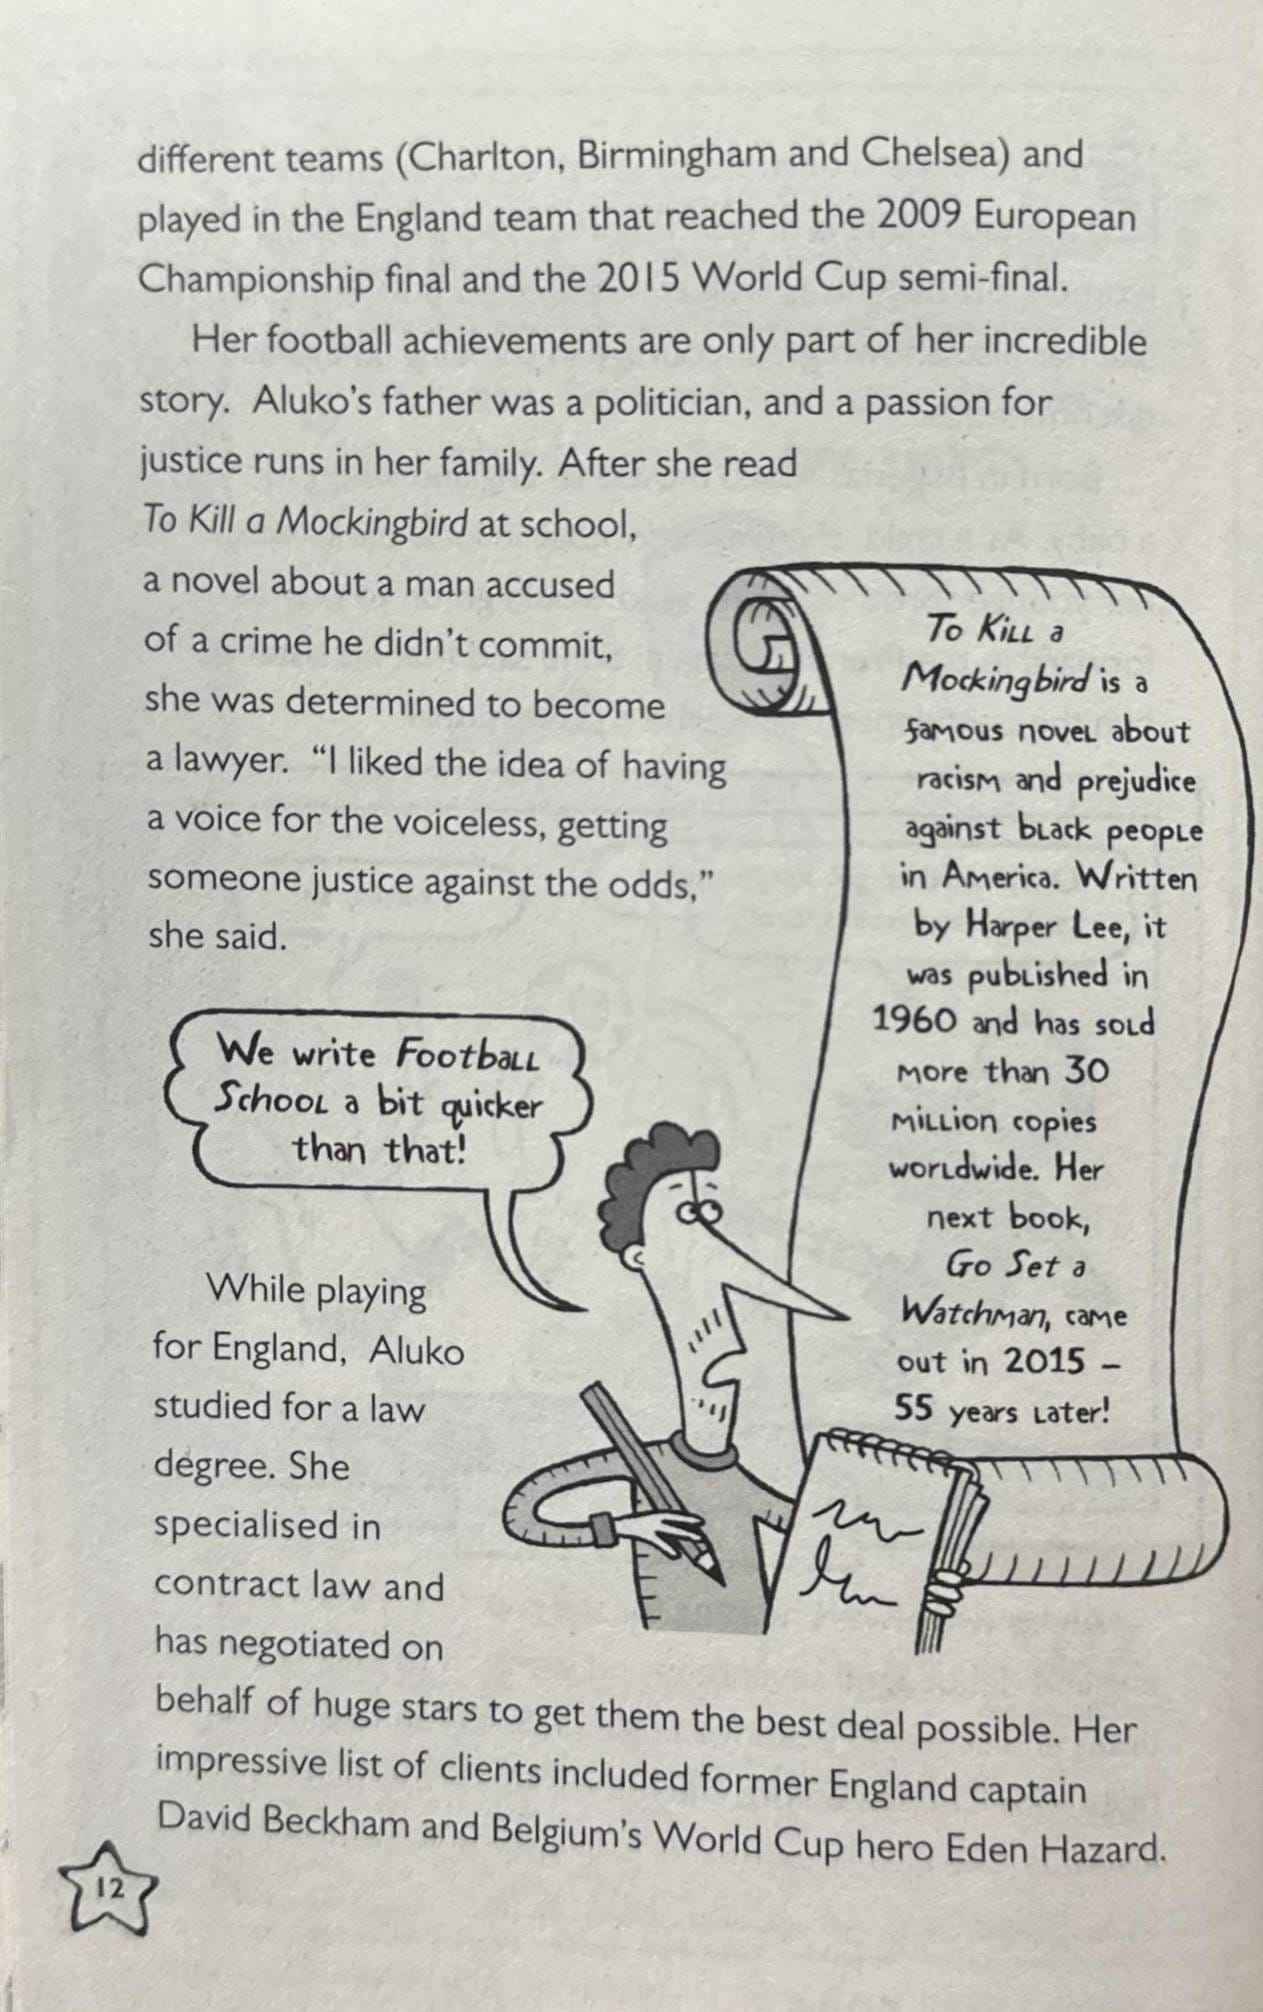 different teams (Charlton, Birmingham and Chelsea) and
played in the England team that reached the 2009 European
Championship final and the 2015 World Cup semi-final.
Her football achievements are only part of her incredible
story. Aluko's father was a politician, and a passion for
justice runs in her family. After she read
To Kill a Mockingbird at school,
a novel about a man accused
of a crime he didn't commit,
she was determined to become
a lawyer. "I liked the idea of having
a voice for the voiceless, getting
someone justice against the odds,"
she said.
To Kill a
Mockingbird is a
famous novel about
racism and prejudice
against black people
in America. Written
by Harper Lee, it
was published in
1960 and has sold
more than 30
million copies
worldwide. Her
next book,
Go Set a
Watchman, came
out in 2015 –
55 years later!
We write Football
School a bit quicker
than that!
While playing
for England, Aluko
studied for a law
degree. She
specialised in
contract law and
has negotiated on
behalf of huge stars to get them the best deal possible. Her
impressive list of clients included former England captain
David Beckham and Belgium's World Cup hero Eden Hazard.
12